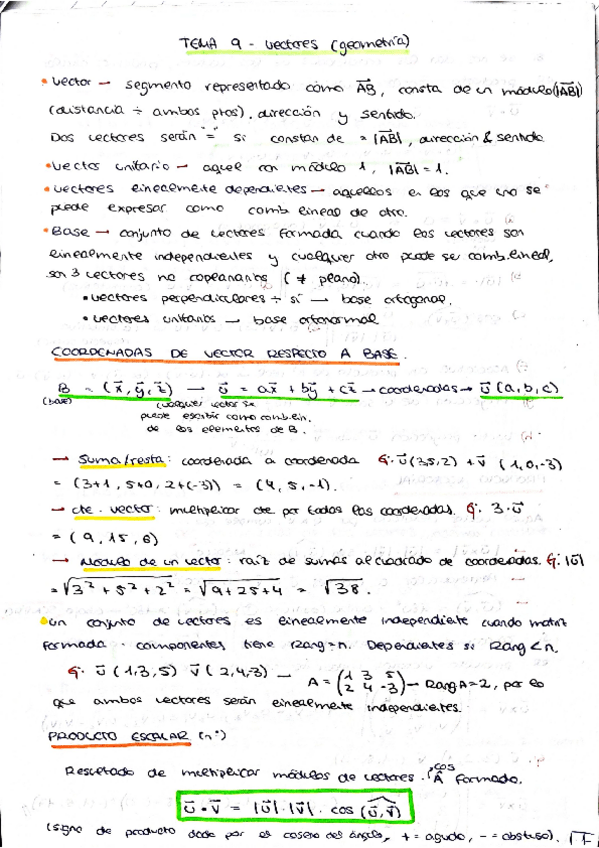 TEMA 9 - Vectores (geometría)
• Vector — segmento representado como AB⃗, consta de un módulo |AB⃗|
(distancia ÷ ambos ptos), dirección y sentido.
Dos vectores serán "=" si constan de = |AB⃗|, dirección & sentido
• Vector unitario — aquel con módulo 1, |AB⃗| = 1.
• Vectores linealmente dependientes — aquellos en los que uno se
puede expresar como comb lineal de otro.
• Base — conjunto de vectores formada cuando los vectores son
linealmente independientes y cualquier otro puede ser comb. lineal,
son 3 vectores no coplanarios ( ≠ plano).
• vectores perpendiculares ÷ sí → base ortogonal.
• vectores unitarios → base ortonormal
COORDENADAS DE VECTOR RESPECTO A BASE.
B = (x⃗, y⃗, z⃗) → u⃗ = ax⃗ + by⃗ + cz⃗ → coordenadas → u⃗ (a, b, c)
(base) cualquier vector se
puede escribir como comb lin.
de los elementos de B.
→ Suma/resta: coordenada a coordenada Ej: u⃗ (3,5,2) + v⃗ (1,0,-3)
= (3+1, 5+0, 2+(-3)) = (4, 5, -1).
→ cte · vector: multiplicar cte por todas las coordenadas. Ej: 3·u⃗
= (9, 15, 6)
→ Módulo de un vector: raíz de sumas al cuadrado de coordenadas. Ej: |u⃗|
= √3² + 5² + 2² = √9+25+4 = √38.
• Un conjunto de vectores es linealmente independiente cuando matriz
formada · componentes tiene Rang = n. Dependientes si Rang < n.
Ej: u⃗ (1,3,5) v⃗ (2,4,-3) → A = (1 3 5
2 4 -3) → Rang A = 2, por lo
que ambos vectores serán linealmente independientes.
PRODUCTO ESCALAR (nº)
Resultado de multiplicar módulos de vectores · cos Â formado.
u⃗ · v⃗ = |u⃗| · |v⃗| · cos (u⃗, v⃗)
(signo de producto dado por el coseno del ángulo, + = agudo, - = obtuso).